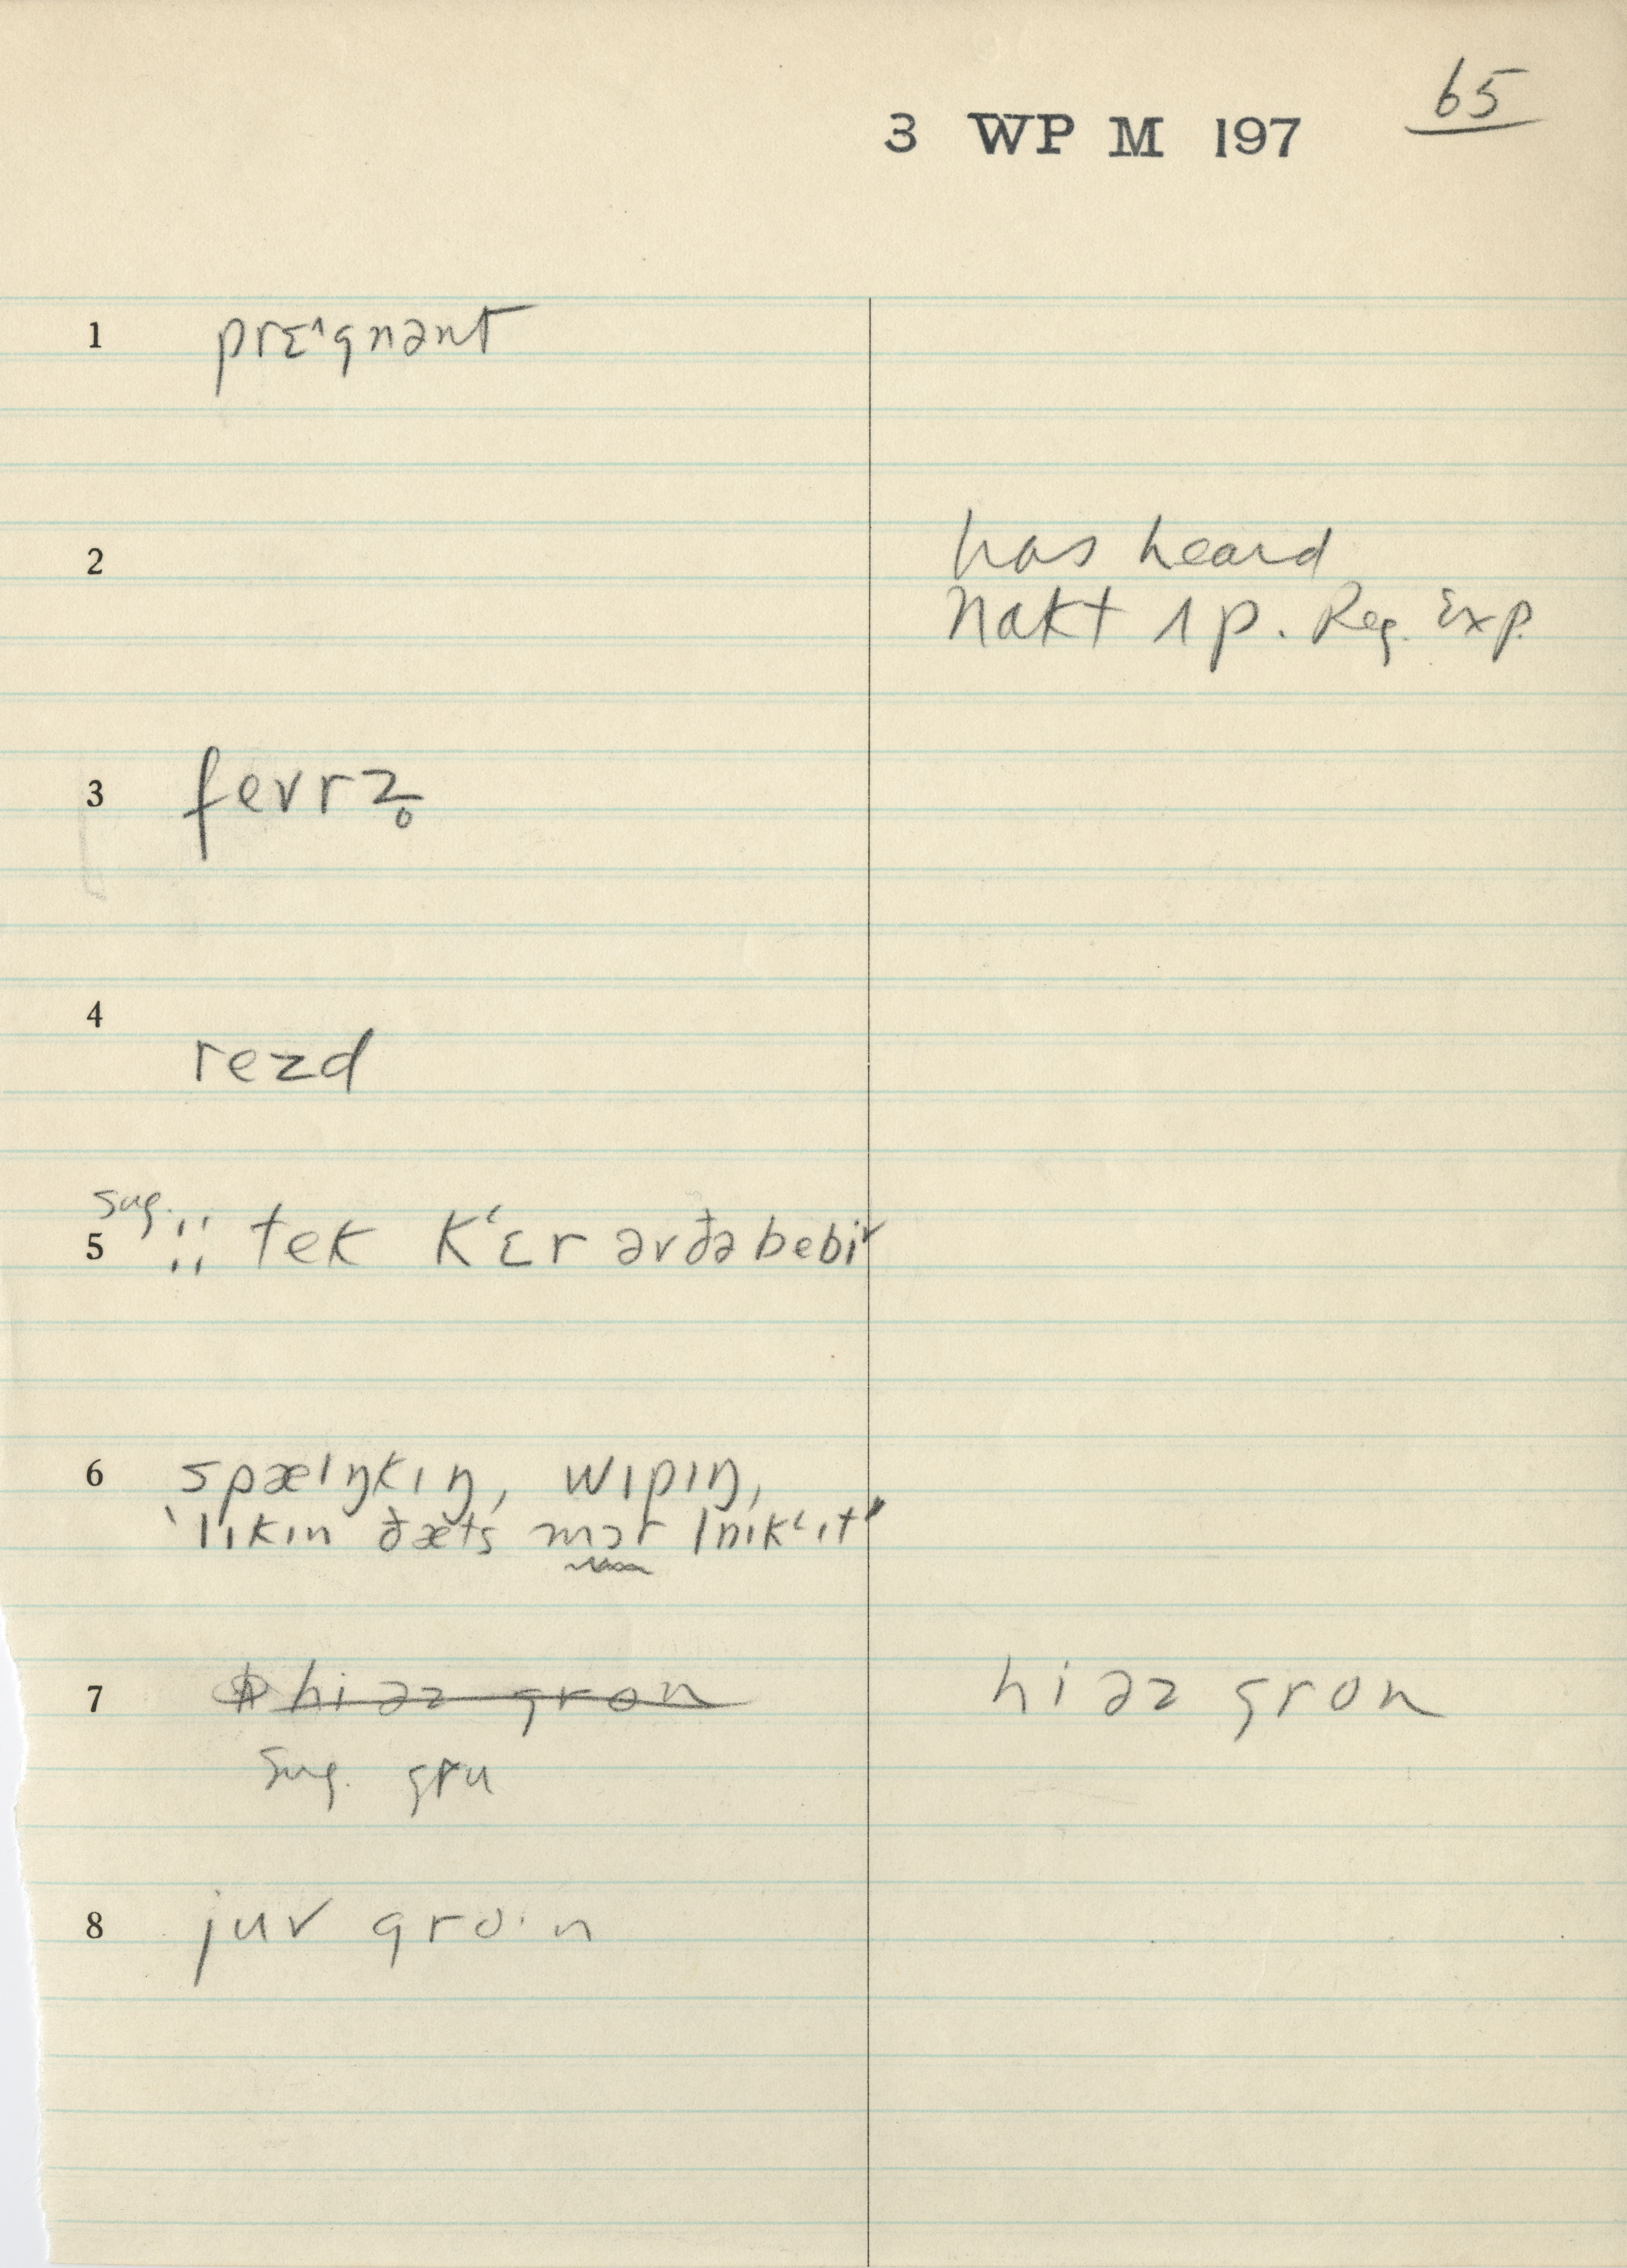 65
3 WP M 197
1 prɛˈgnənt
2 has heard
nakt ʌp. Reg. Exp.
3 fevrz̥
4 rezd
sug.
5 ⁏⁏ tek kʻɛr əvðə bebi
6 spæɪŋkɪŋ, wɪpɪŋ,
"lɪkɪn ðæts mɔr lɪkʻɪt"
7 ~~hi əz gron~~ hi əz gron
sug. gru
8 juv gro·n